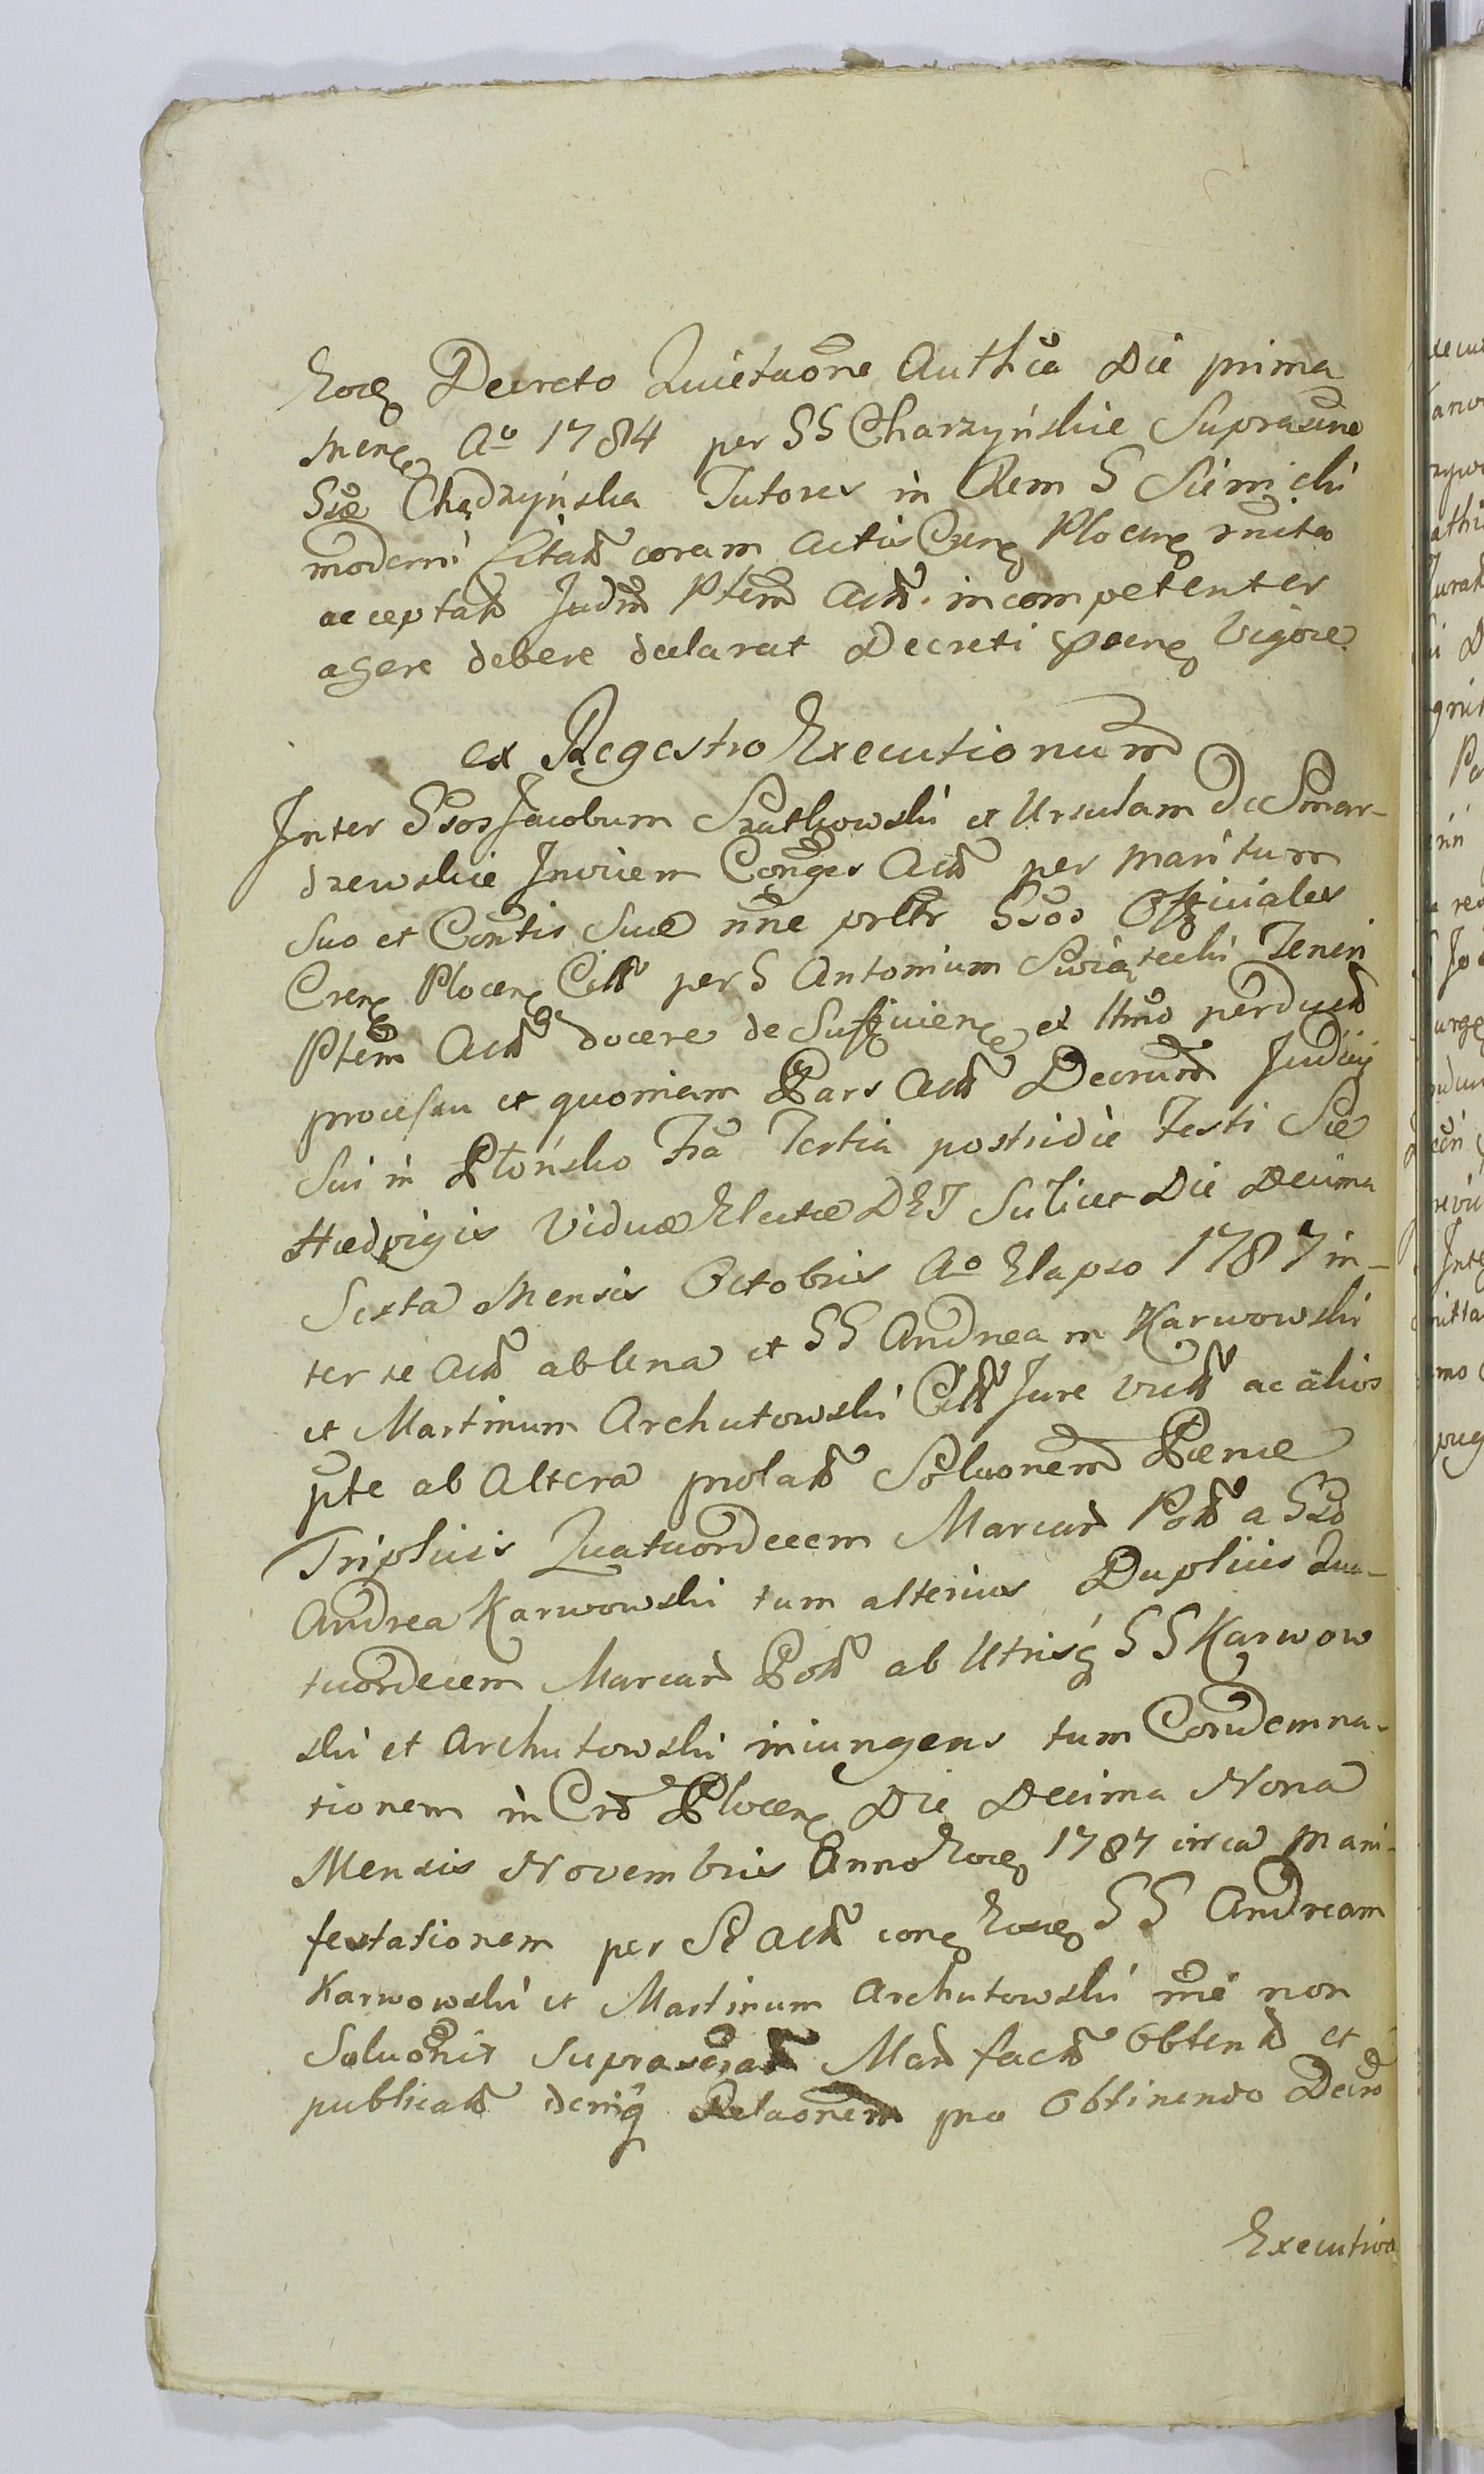 Eoq Decreto Quietaõne Authca Die prima
Mens Aº 1784 per SS Charzyńskie Suprascriñe
Ssae Chądzyńska Tutores in Rem S Siemięcki
moderni Citat coram Actis Cren Plocen
acceptat Judm Ptem Act. incompetenter
agere debere declarat Decreti pocen Vigore
ex Regestro Executionum
Inter Ssos Jacobum Szatkowski et Ursulam De Smar-
dzewskie Inviem Conges Act per maritum
Suo et Contis Suae nñe prltr Ssos Officiales
Cren Plocen Citt per S Antonium Swiątecki Teneri
Ptem Act docere de Sufficien et ltmo perduct
processu et quoniam Pars Act Decrum Judicij
Sui in Płońsko Fra Tertia postridie Festi Stae
Hedvigis Viduae Electae DEI Scilicet Die Decima
Sexta Mensis Octobris Aº Elapso 1787 in-
ter se Act ab una et SS Andream Karwowski
et Martinum Archutowski Citt Jure Vict ac alios
pte ab Altera prolat Soluonem Paenae
Triplicis Quatuordecem Marcar Pol a Sso
Andrea Karwowski tum alterius Duplicis Qua-
tuordecem Marcar Pol ab Utrisq SS Karwow
ski et Archutowski iniungens tum Condemna-
tionem in Crd Plocen Die Decima Nona
Mensis Novembris Anno Eoq 1787 circa Mani-
festationem per Se Act con Eosq SS Andream
Karwowski et Martinum Archutowski rñe non
Soluonis suprascript Mar fact obtent et
publicat deniq Relaonem pro Obtinendo Decro
Executivo